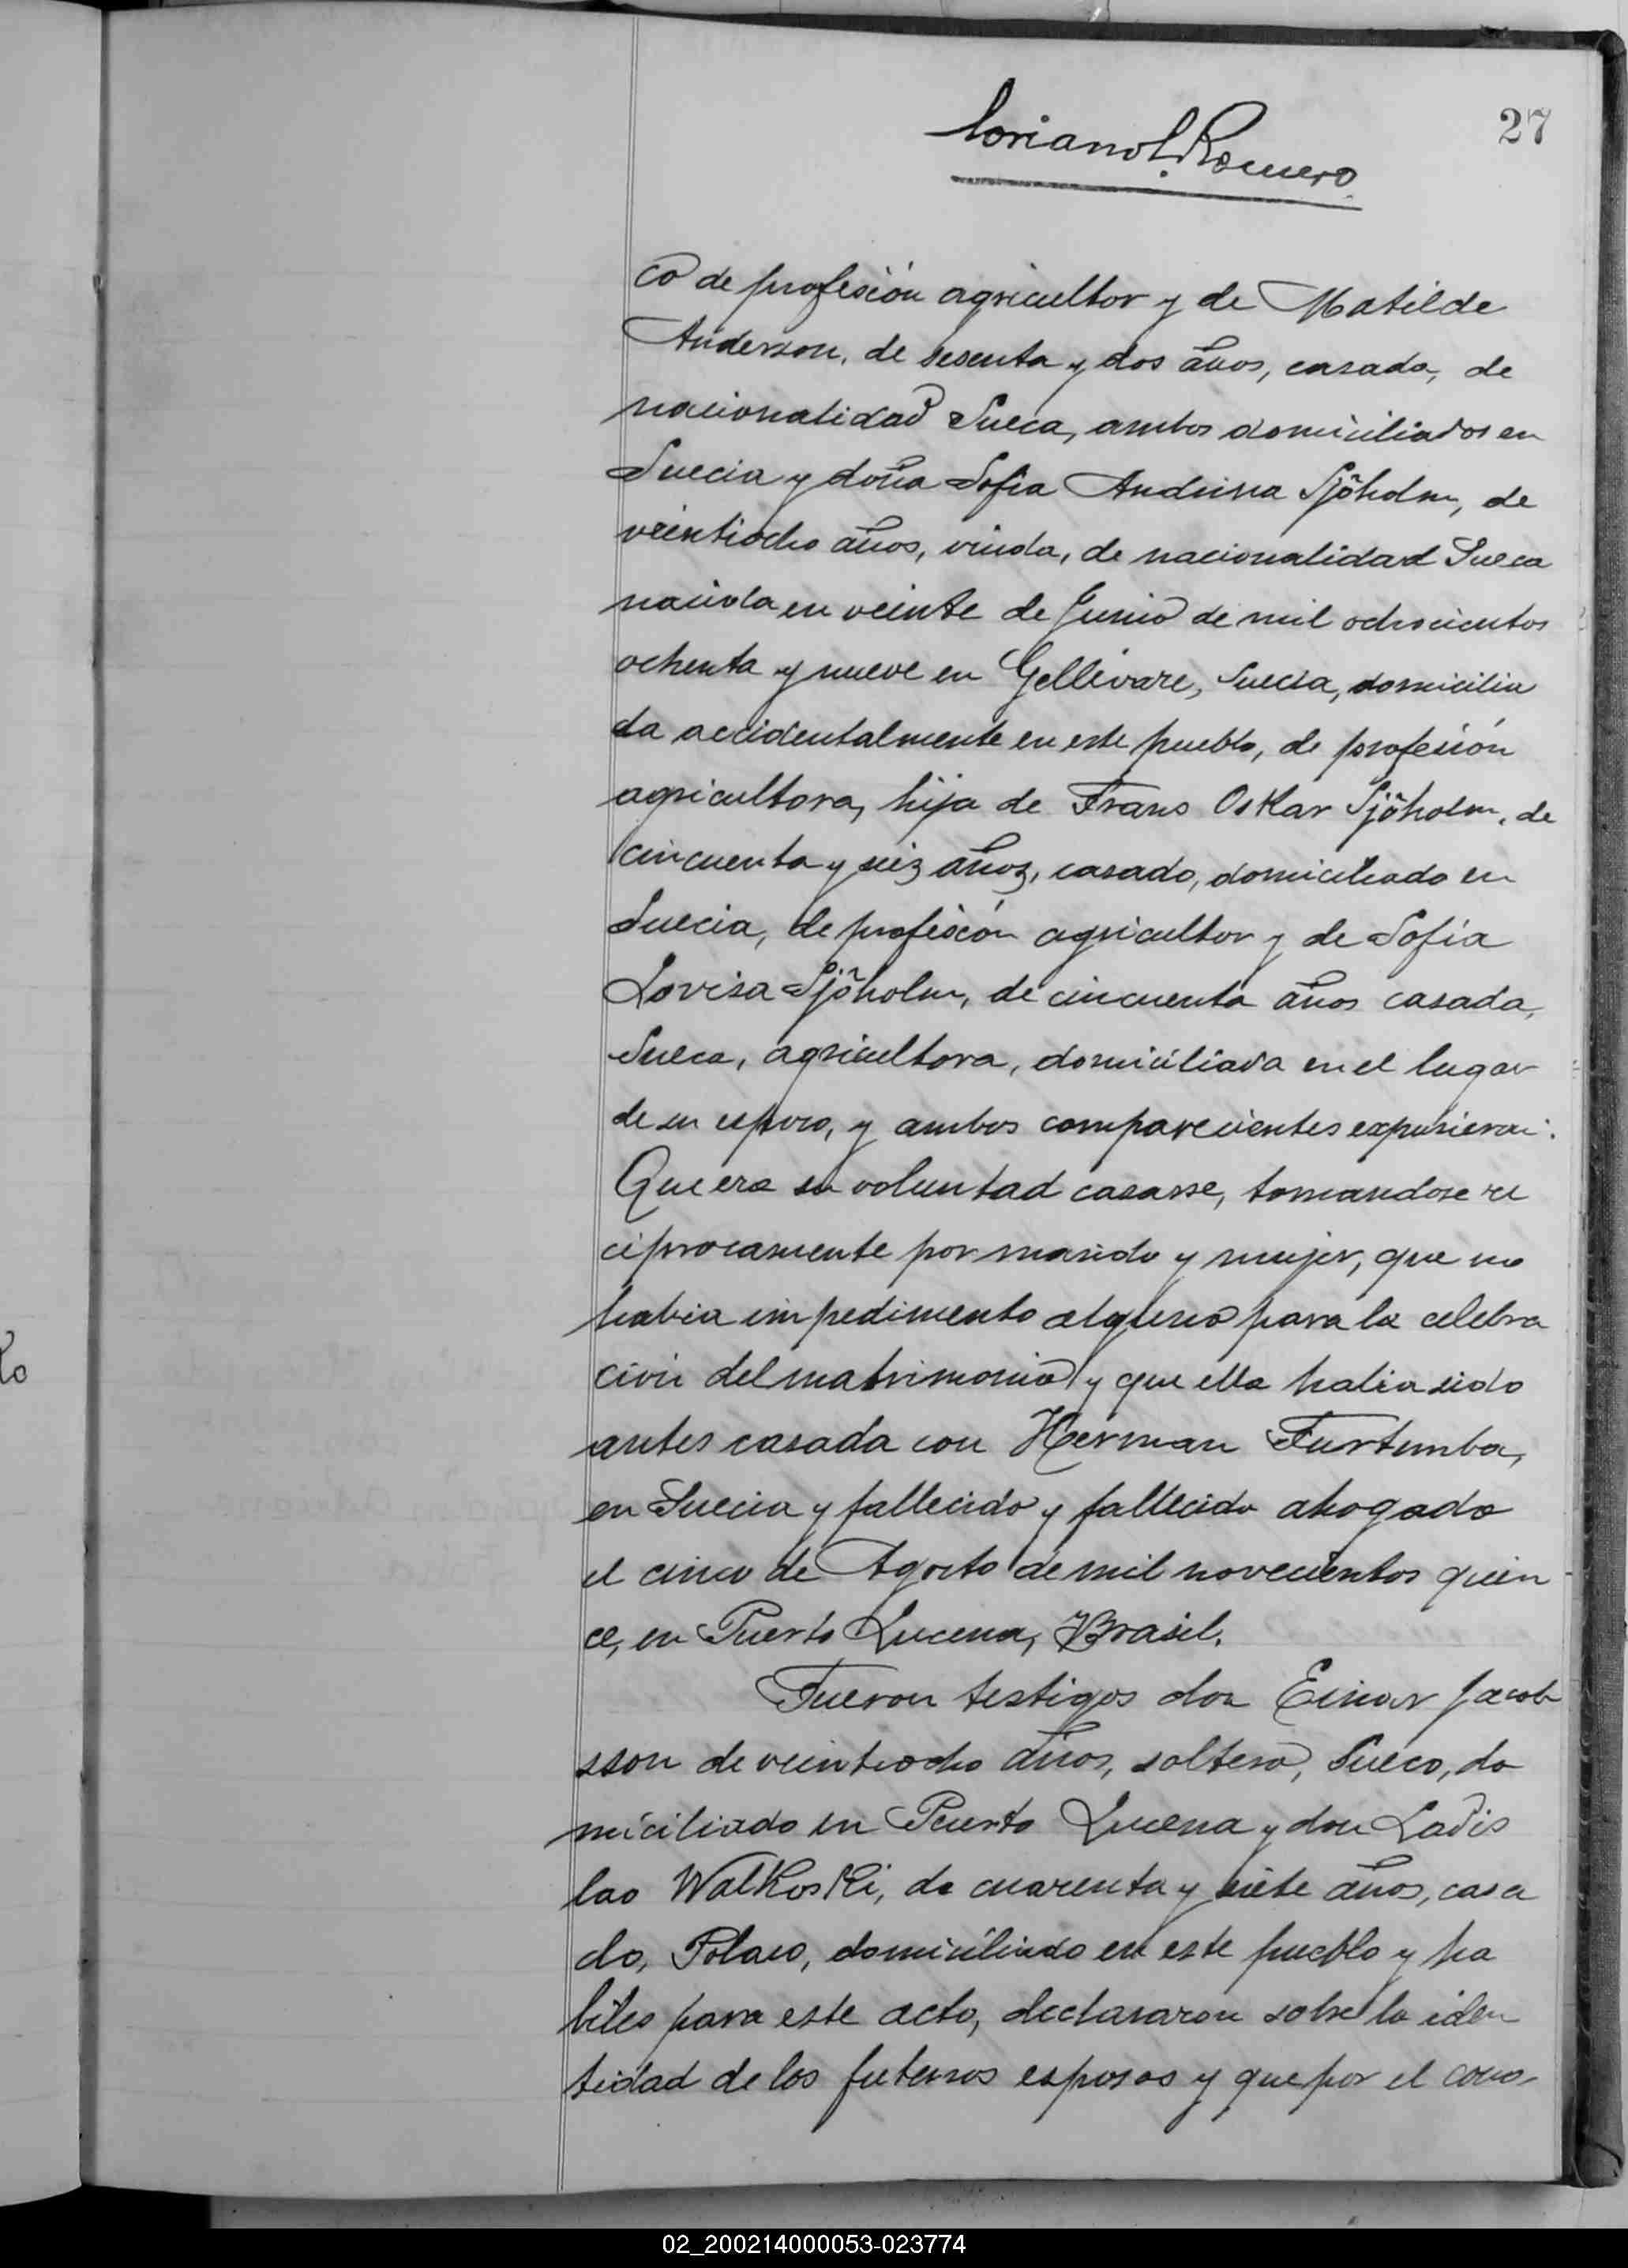 27
Loriano L. Romero
co de profesión agricultor y de Matilde
Anderson, de sesenta y dos años, casada, de
nacionalidad Sueca, ambos domiciliados en
Suecia y doña Sofia Andrina Sjöholm, de
veintiocho años, viuda, de nacionalidad Sueca
nacida en veinte de Junio de mil ochocientos
ochenta y nueve en Gellivare, Suecia, domicilia
da accidentalmente en este pueblo, de profesión
agricultora, hija de Frans Oskar Sjöholm, de
cincuenta y seiz añoz, casado, domiciliado en
Suecia, de profesión agricultor y de Sofia
Lovisa Sjöholm, de cincuenta años casada,
Sueca, agricultora, domiciliada en el lugar
de su esposo, y ambos comparecientes expusieron:
Que era su voluntad casarse, tomandose re
ciprocamente por marido y mujer, que no
habia impedimento alguno para la celebra
ción del matrimonio y que ella habia sido
antes casada con Herman Furtimba,
en Suecia y fallecido y fallecido ahogado
el cinco de Agosto de mil novecientos quin
ce, en Puerto Lucena, Brasil.
Fueron testigos don Einar Jacob
sson de veintiocho años, soltero, Sueco, do
miciliado en Puerto Lucena y don Ladis
lao Walkoski, de cuarenta y siete años, casa
do, Polaco, domiciliado en este pueblo y ha
biles para este acto, declararon sobre la iden
tidad de los futuros esposos y que por el cono-
02_200214000053-023774